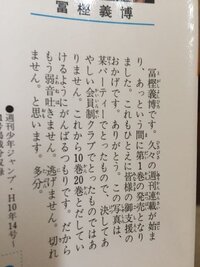 冨樫義博
冨樫義博です。久々の週刊連載が始ま
り、あっという間に第1巻の発売となり
ました。これもひとえに皆様の御支援の
おかげです。ありがとう。この写真は、
某パーティーでとったもので、決してあ
やしい会員制クラブでとったものではあ
りません。これから10巻20巻とだしてい
けるようにがんばるつもりです。だから
もう弱音吐きません。逃げません。切れ
ません。と思います。多分。
●週刊少年ジャンプ・H10年14号〜